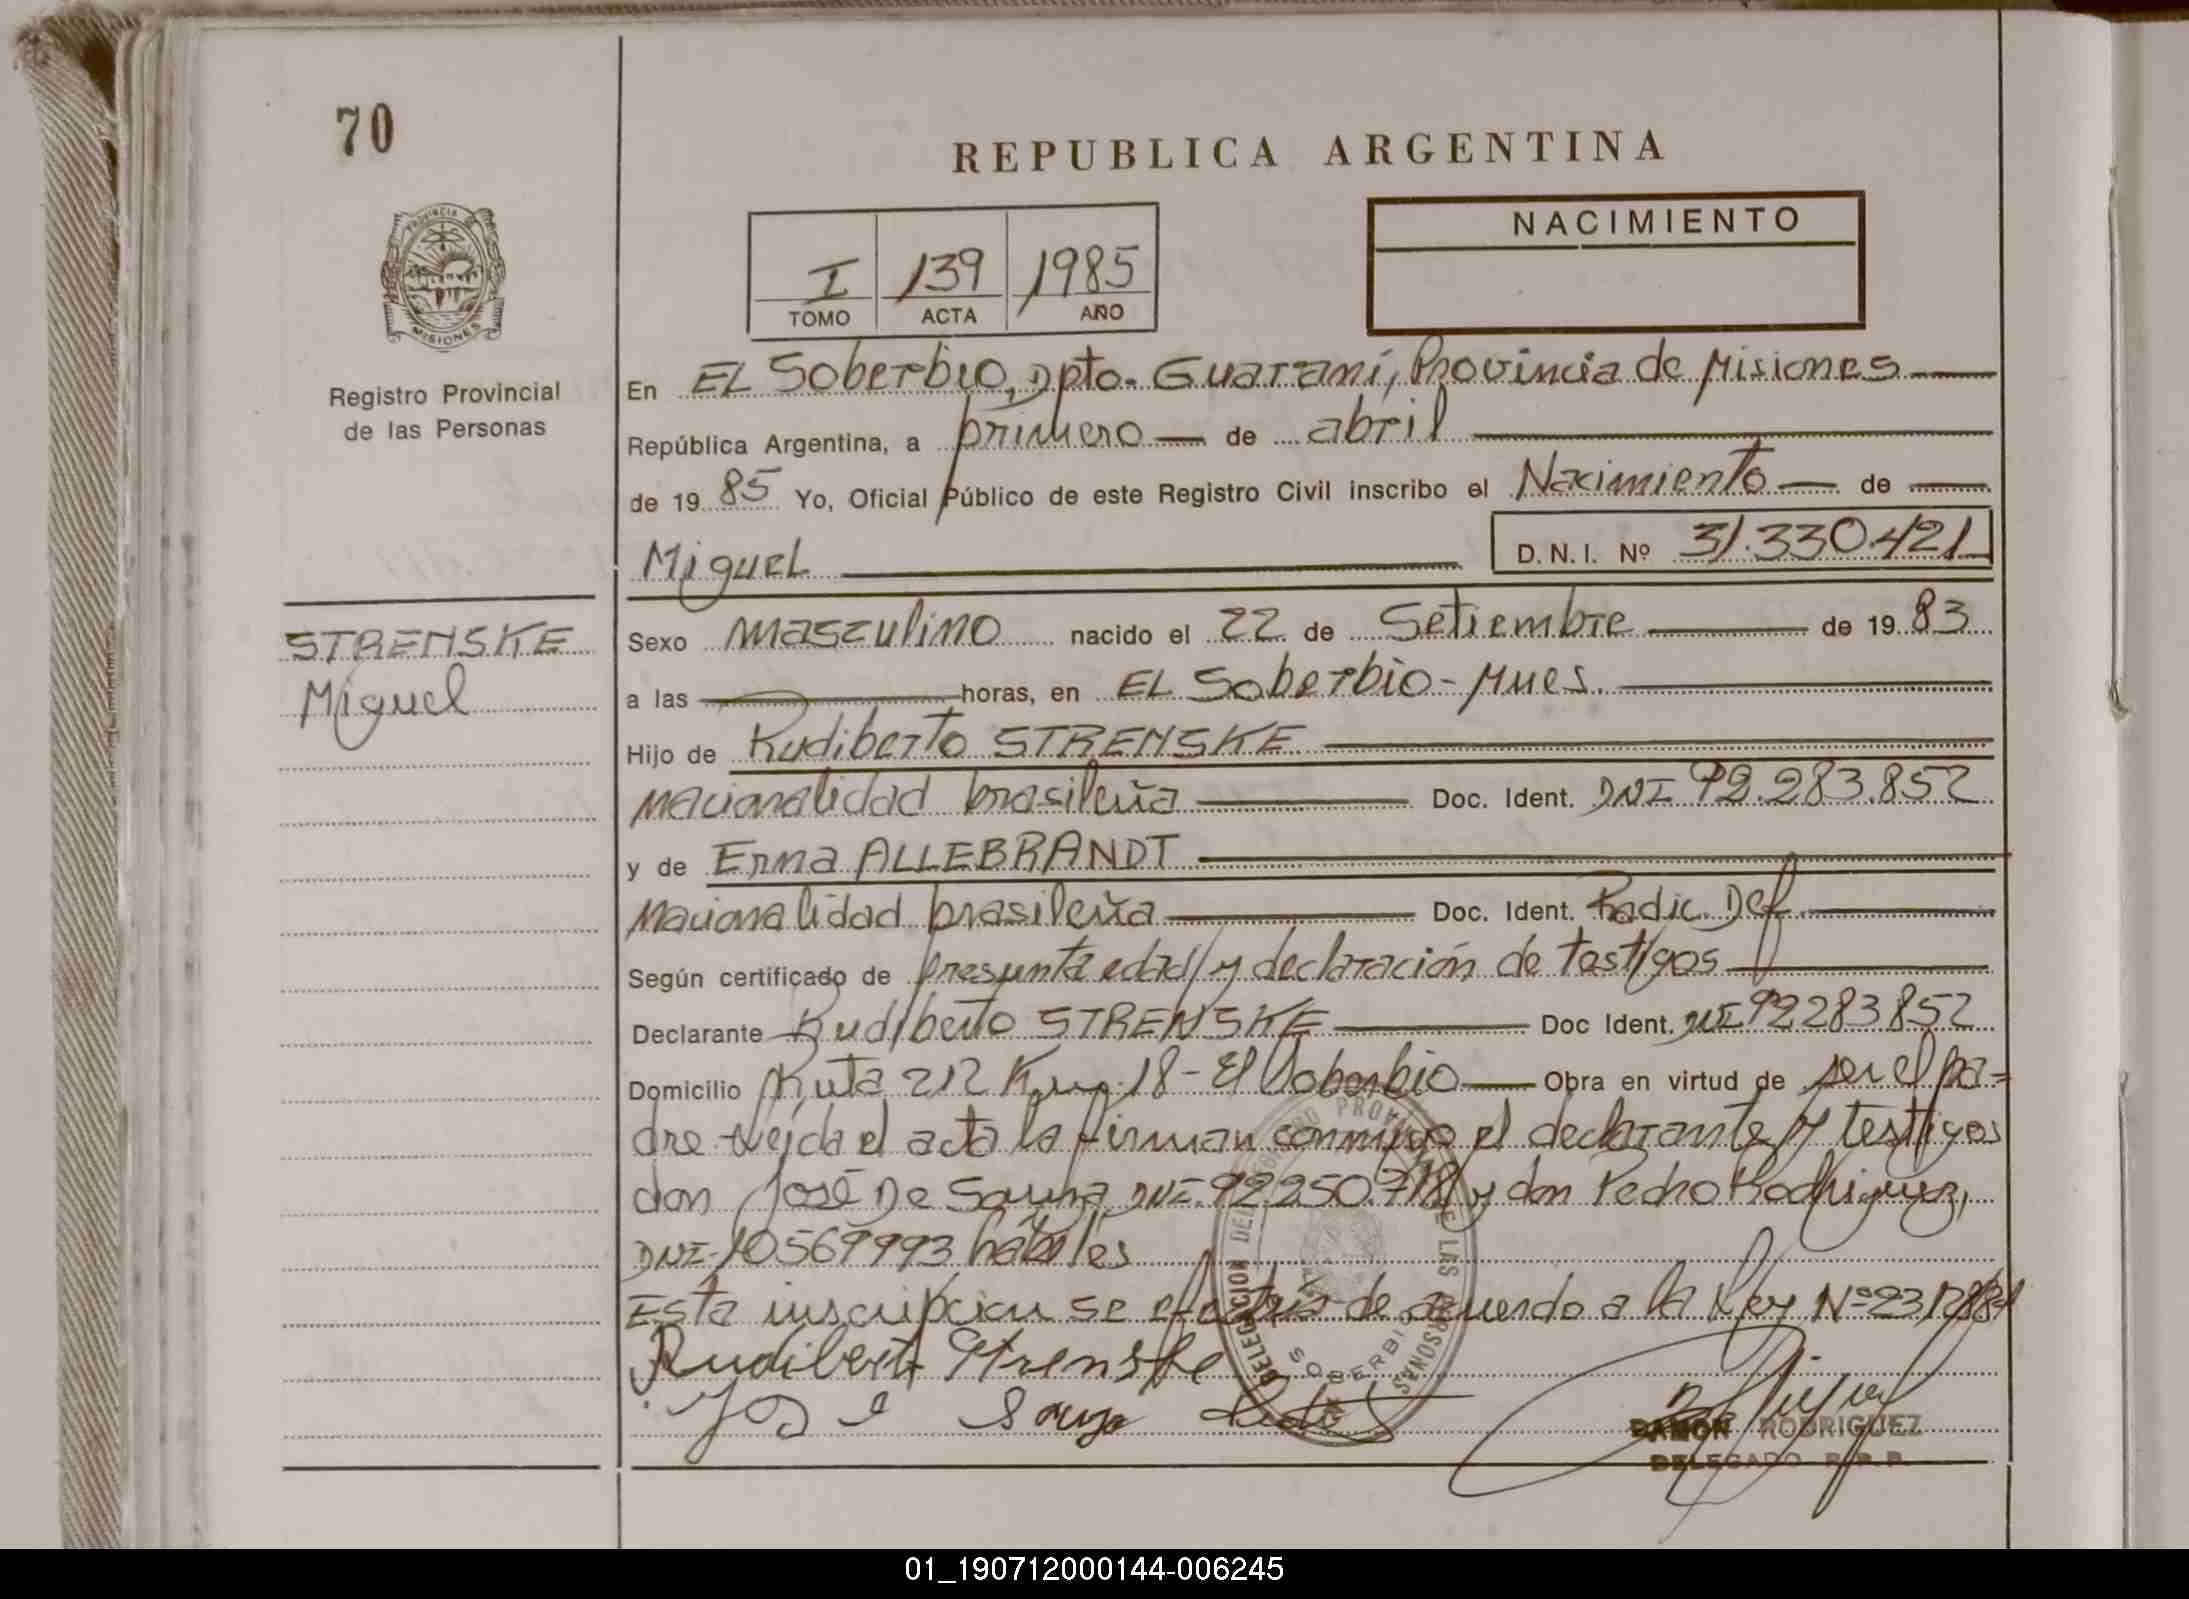 70
REPUBLICA ARGENTINA
PROVINCIA DE
MISIONES
NACIMIENTO
I 139 1985
TOMO ACTA AÑO
Registro Provincial
de las Personas
En EL Soberbio, Dpto. Guaraní, Provincia de Misiones
República Argentina, a primero de abril
de 19 85 Yo, Oficial Público de este Registro Civil inscribo el Nacimiento de
Miguel D.N.I. Nº 31.330.421
STRENSKE
Miguel
Sexo masculino nacido el 22 de Setiembre de 19 83
a las horas, en EL Soberbio-Mnes.
Hijo de Rudiberto STRENSKE
nacionalidad brasileña Doc. Ident. DNI 92.283.852
y de Erna ALLEBRANDT
nacionalidad brasileña Doc. Ident. Radic. Def
Según certificado de presunta edad y declaración de testigos
Declarante Rudiberto STRENSKE Doc Ident. DNI 92283852
Domicilio Ruta 212 Km 18 - El Soberbio Obra en virtud de ser el pa=
dre leída el acta la firman conmigo el declarante y testigos
don José De Souza DNI. 92.250.718 y don Pedro Rodriguez,
DNI. 10569993 hábiles
Esta inscripcion se efectúa de acuerdo a la Ley Nº
Rudiberto Strenske
José Souza
DELEGACION DEL REGISTRO PROVINCIAL DE LAS PERSONAS
SOBERBIO
RAMON RODRIGUEZ
DELEGADO R.P.P.
01_190712000144-006245